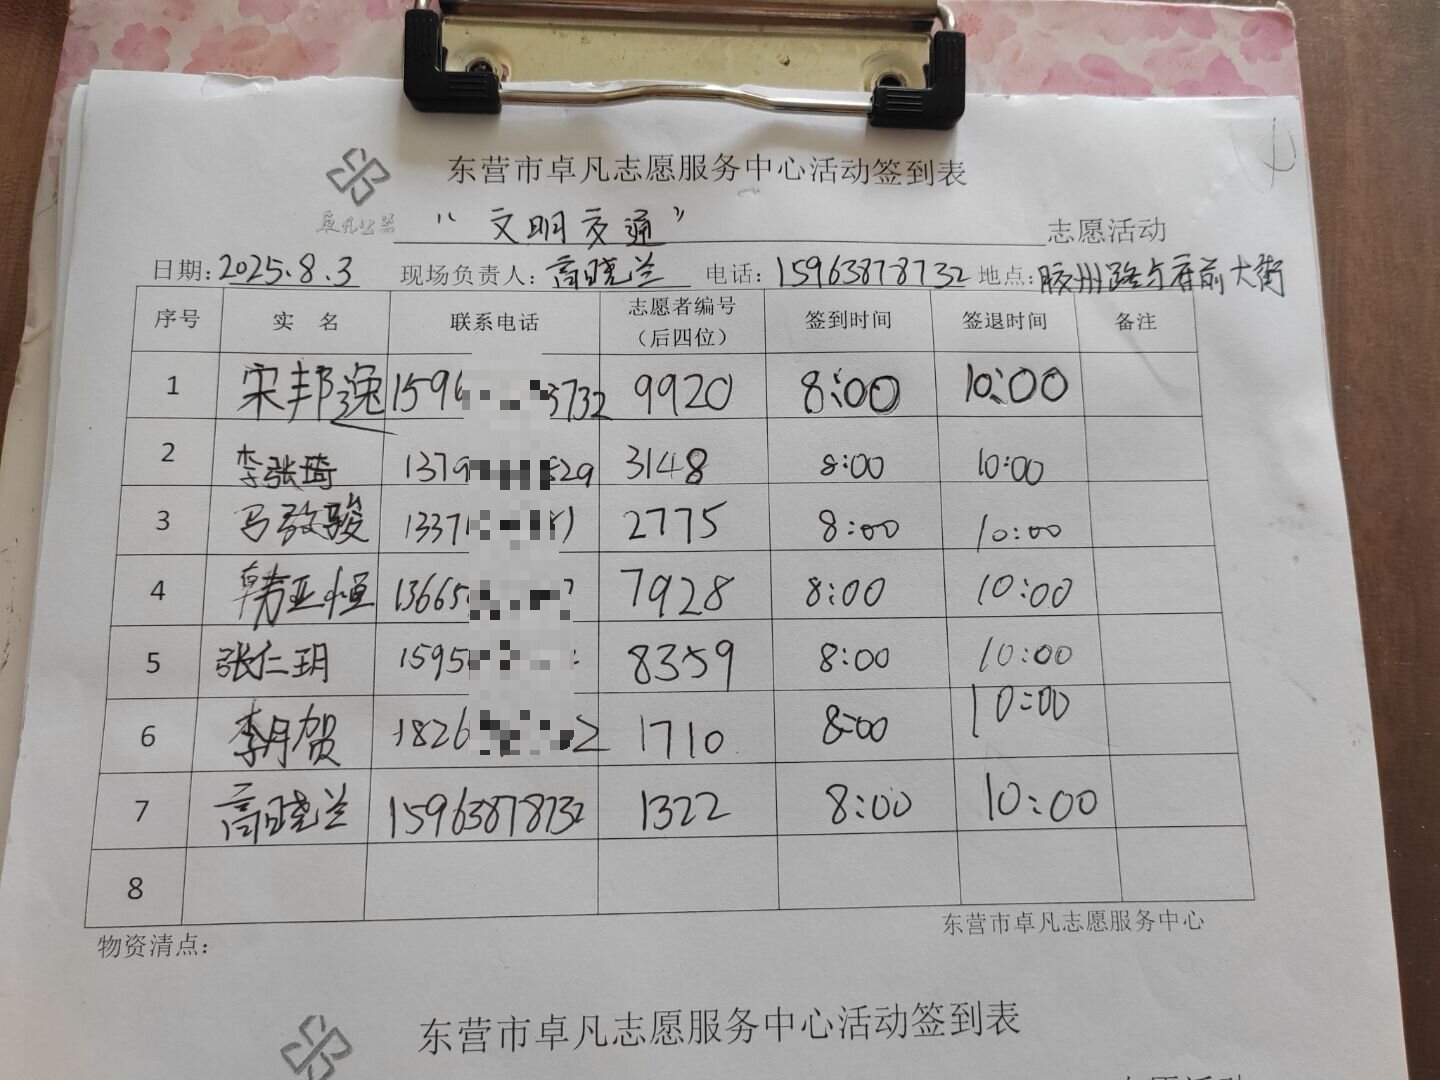 东营市卓凡志愿服务中心活动签到表
卓凡公益
“文明交通” 志愿活动
日期：2025.8.3 现场负责人：高晓兰 电话：15963878732 地点：胶州路与府前大街
序号 实 名 联系电话 志愿者编号（后四位） 签到时间 签退时间 备注
1 宋邦逸 1596 3732 9920 8:00 10:00
2 李张琦 1379 529 3148 8:00 10:00
3 马致骏 1337 2775 8:00 10:00
4 韩亚恒 13665 7928 8:00 10:00
5 张仁玥 1595 8359 8:00 10:00
6 李月贺 1826 2 1710 8:00 10:00
7 高晓兰 15963878732 1322 8:00 10:00
8
东营市卓凡志愿服务中心
物资清点：
东营市卓凡志愿服务中心活动签到表